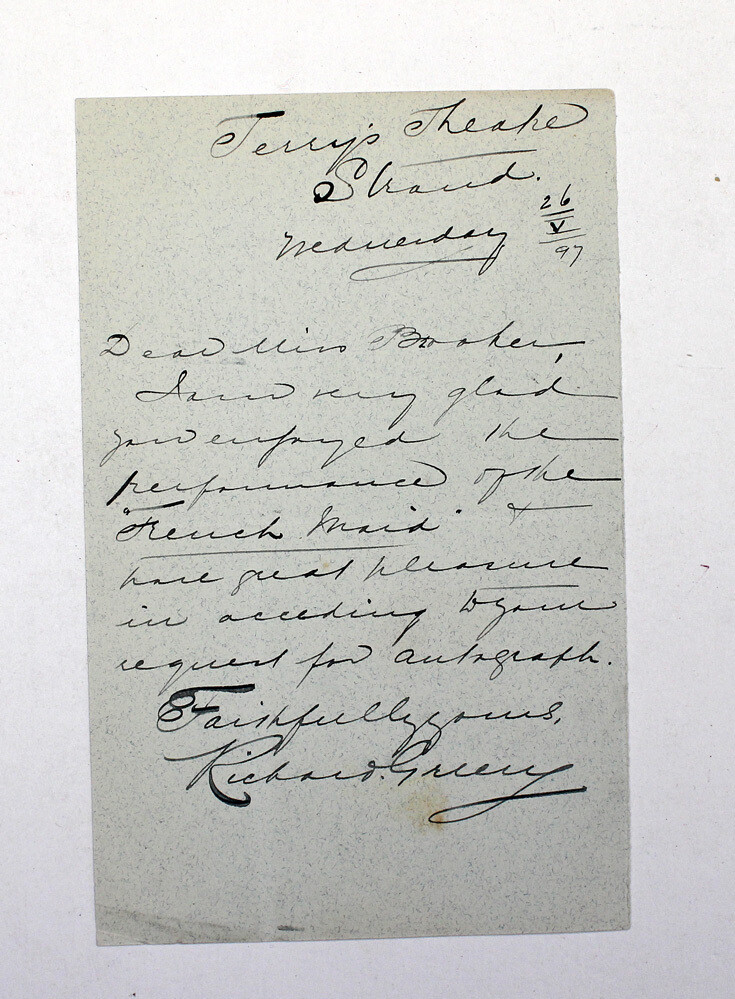 Terry's Theatre
Strand.
Wednesday 26
V
97
Dear Miss Booker,
I am very glad
you enjoyed the
performance of the
"French Maid" &
have great pleasure
in acceding to your
request for autograph.
Faithfully yours,
Richard Green